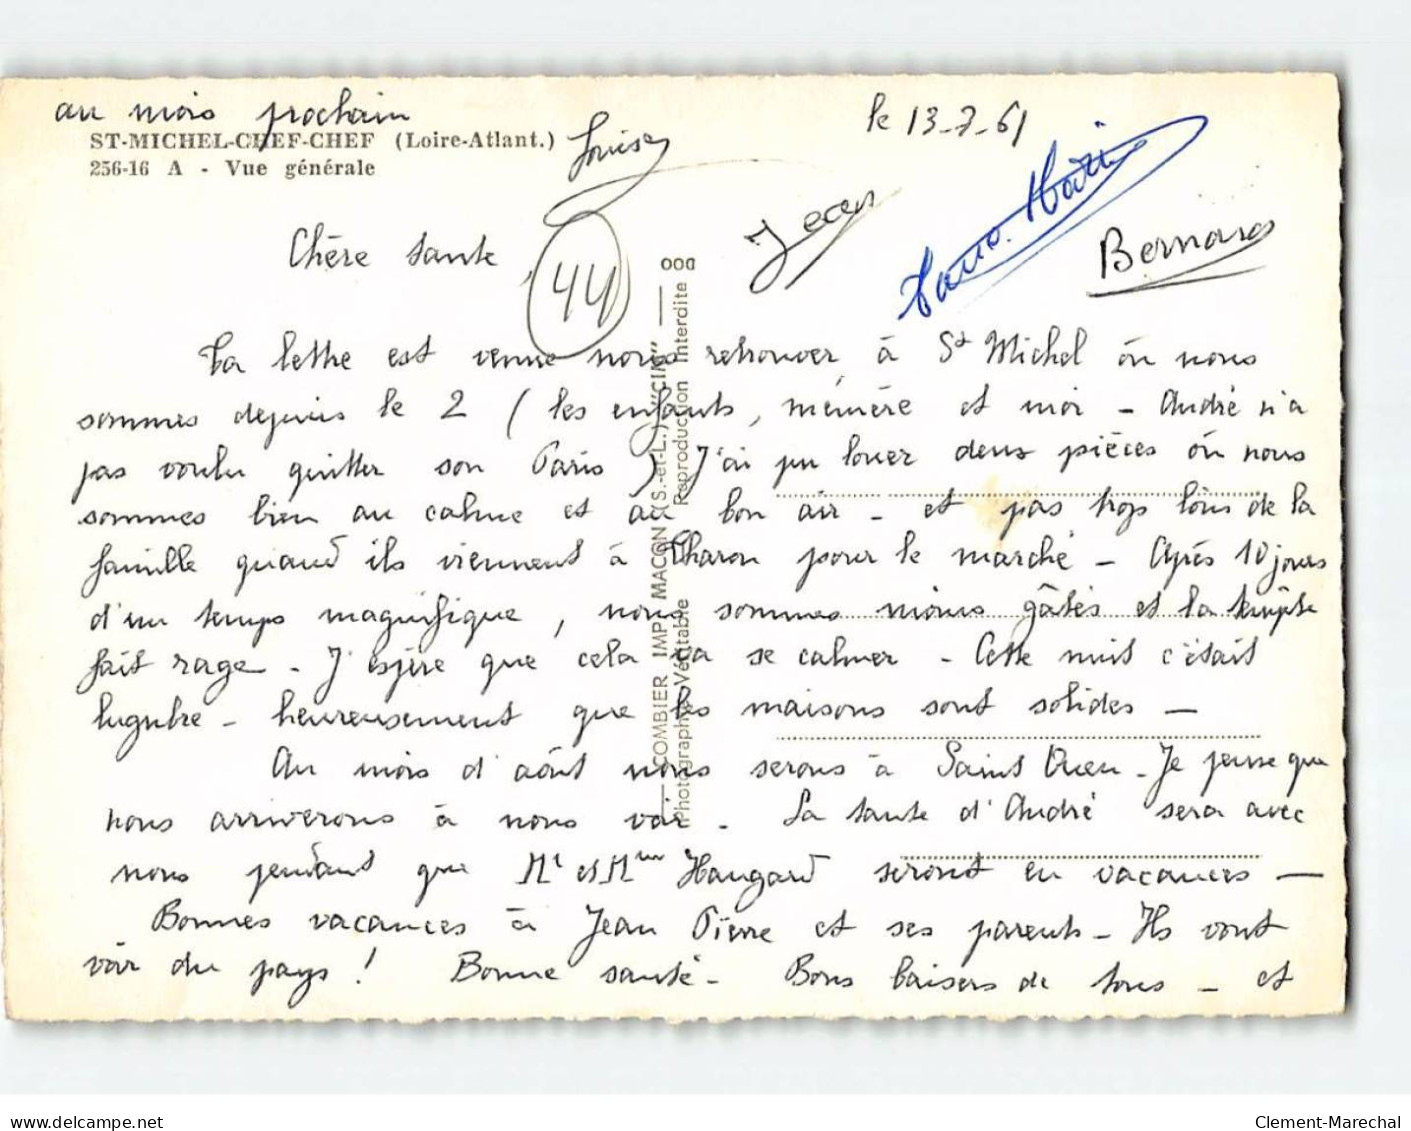 au mois prochain
ST-MICHEL-CHEF-CHEF (Loire-Atlant.)
256-16 A - Vue générale
Louise
le 13-7-61
Jean
Bernard
Chère tante,
44
Ta lettre est venue nous retrouver à St Michel où nous
sommes depuis le 2 (les enfants, mémère et moi - André n'a
pas voulu quitter son Paris) J'ai pu louer deux pièces où nous
sommes bien au calme et au bon air - et pas trop loin de la
famille quand ils viennent à Tharon pour le marché - Après 10 jours
d'un temps magnifique, nous sommes moins gâtés et la tempête
fait rage - J'espère que cela va se calmer - Cette nuit c'était
lugubre - heureusement que les maisons sont solides -
Au mois d'août nous serons à Saint Ouen - Je pense que
nous arriverons à nous voir - La tante d'André sera avec
nous pendant que Mr et Mme Haugard seront en vacances -
Bonnes vacances à Jean Pierre et ses parents - Ils vont
voir du pays ! Bonne santé - Bons baisers de tous - et
COMBIER IMP. MACON (S.-et-L.) "CIM"
Photographie Véritable Reproduction Interdite
Clement-Marechal
delcampe.net